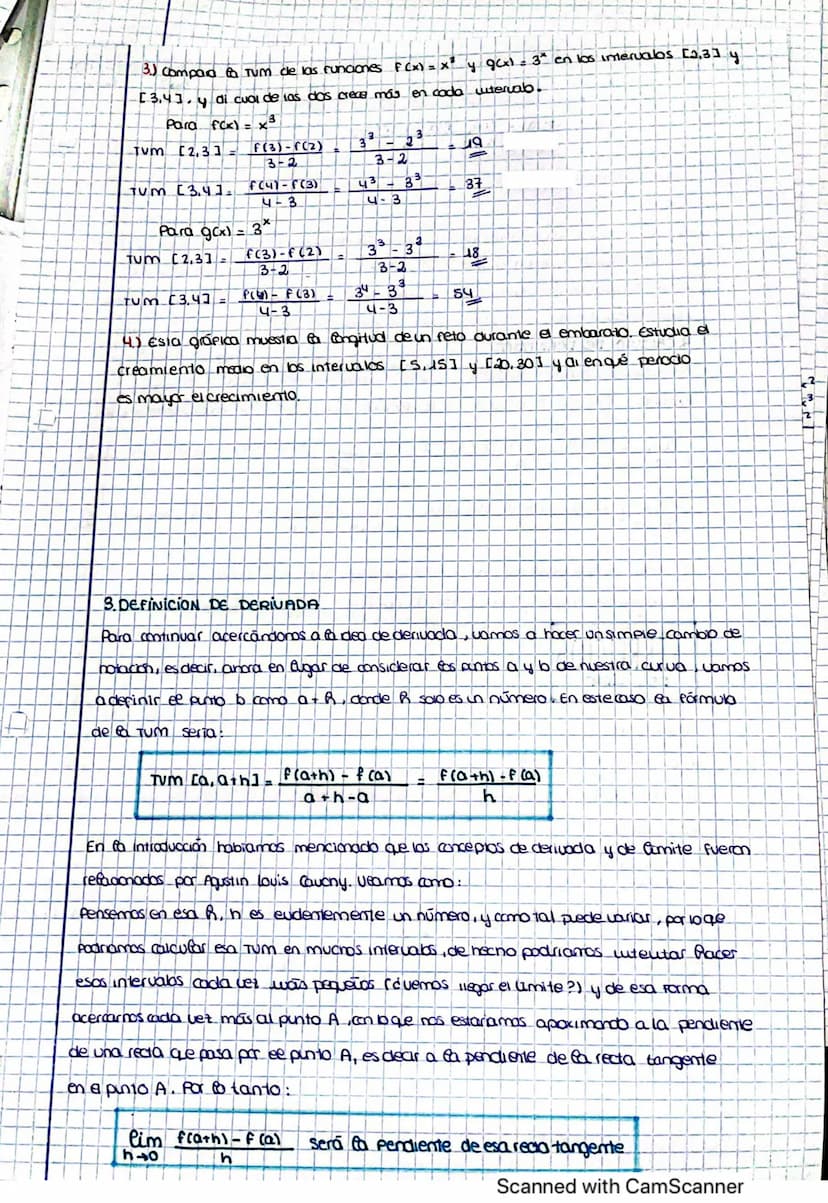 3.) Compara la TVM de las funciones f(x) = x³ y g(x) = 3ˣ en los intervalos [2,3] y
[3,4], y di cual de las dos crece más en cada intervalo.
Para f(x) = x³
TVM [2,3] = f(3)-f(2) / 3-2 = 3³ - 2³ / 3-2 = 19
TVM [3,4] = f(4)-f(3) / 4-3 = 4³ - 3³ / 4-3 = 37
Para g(x) = 3ˣ
TVM [2,3] = f(3)-f(2) / 3-2 = 3³ - 3² / 3-2 = 18
TVM [3,4] = f(4)-f(3) / 4-3 = 3⁴ - 3³ / 4-3 = 54
4.) Esta gráfica muestra la longitud de un feto durante el embarazo. Estudia el
crecimiento medio en los intervalos [5,15] y [20,30] y di en qué periodo
es mayor el crecimiento.
3. DEFINICION DE DERIVADA
Para continuar acercándonos a la idea de derivada, vamos a hacer un simple cambio de
notación, es decir, ahora en lugar de considerar los puntos a y b de nuestra curva, vamos
a definir el punto b como a + h, donde h solo es un número. En este caso la fórmula
de la TVM seria:
TVM [a, a+h] = f(a+h) - f(a) / a+h-a = f(a+h) - f(a) / h
En la introducción habiamos mencionado que los conceptos de derivada y de límite fueron
relacionados por Agustin Louis Cauchy. Veamos como:
Pensemos en esa h, h es evidentemente un número, y como tal puede variar, por lo que
podriamos calcular esa TVM en muchos intervalos, de hecho podriamos intentar hacer
esos intervalos cada vez más pequeños (¿vemos llegar el limite?) y de esa forma
acercarnos cada vez más al punto A, con lo que nos estariamos aproximando a la pendiente
de una recta que pasa por el punto A, es decir a la pendiente de la recta tangente
en el punto A. Por lo tanto:
lim h→0 f(a+h) - f(a) / h será la pendiente de esa recta tangente
Scanned with CamScanner